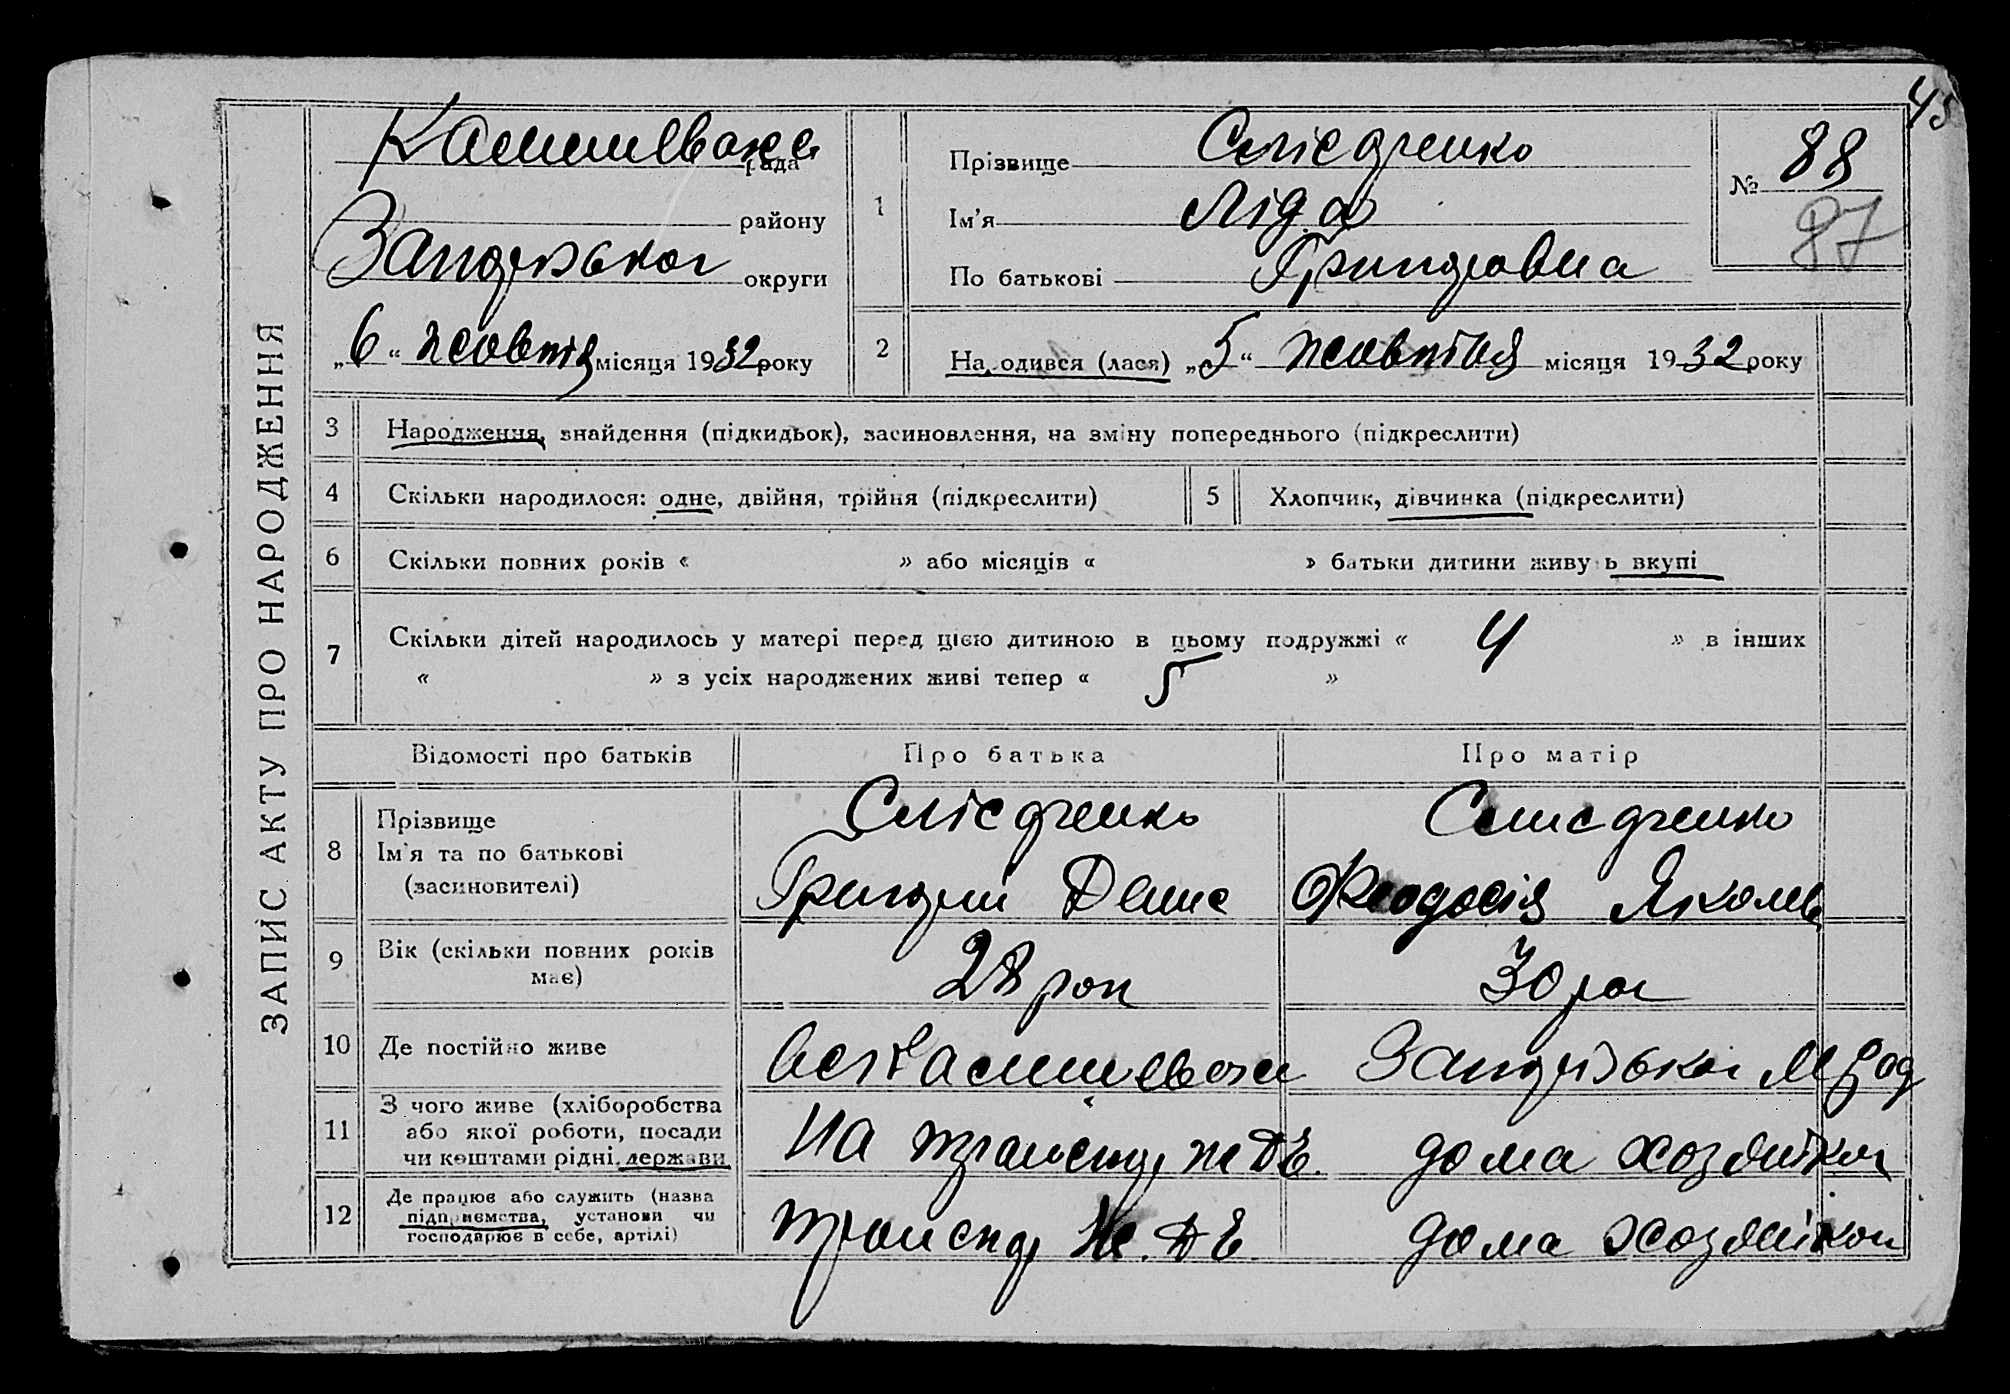 45
ЗАПИС АКТУ ПРО НАРОДЖЕННЯ
Камишеваха рада
району
Запорізької округи
„6“ жовтня місяця 1932 року
1
Прізвище Слісаренко
Ім'я Ліда
По батькові Григоровна
№ 88
87
2 Народився (лася) „5“ жовтня місяця 1932 року
3 Народження, знайдення (підкидьок), засиновлення, на зміну попереднього (підкреслити)
4 Скільки народилося: одне, двійня, трійня (підкреслити) 5 Хлопчик, дівчинка (підкреслити)
6 Скільки повних років « » або місяців « » батьки дитини живуть вкупі
7 Скільки дітей народилось у матері перед цією дитиною в цьому подружжі « 4 » в інших
« » з усіх народжених живі тепер « 5 »
Відомості про батьків Про батька Про матір
8 Прізвище
Ім'я та по батькові
(засиновителі)
Григорий Денис
Феодосія Яковл
9 Вік (скільки повних років
має)
28 рок
30 рок
10 Де постійно живе
Запорізької
11 З чого живе (хліборобства
або якої роботи, посади
чи коштами рідні, держави
на транспор
дома хозяйкой
12 Де працює або служить (назва
підприємства, установи чи
господарює в себе, артілі)
транспор
дома хозяйкой